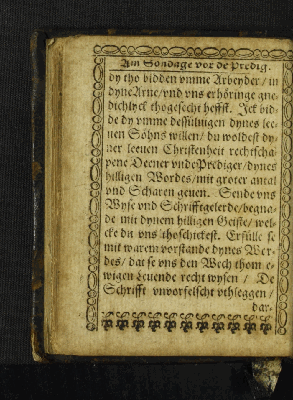 Am Sondage vor de Predig.
dy tho bidden vmme Arbeyder / in
dyne Arne / vnd vns erhöringe gne-
dichlyck thogesecht heffst. Jck bid-
de dy vmme dessüluigen dynes lee-
uen Söhns willen / du woldest dy-
ner leeuen Christenheit rechtscha-
pene Deener vnde Prediger / dynes
hilligen Wordes / mit groter antal
vnd Scharen geuen. Sende vns
Wyse vnd Schrifftgelerde / begna-
de mit dynem hilligen Geiste / wel-
cke du vns thoschickest. Erfülle se
mit warem vorstande dynes Wor-
des / dat se vns den Wech thom e-
wigen Leuende recht wysen / De
Schrifft vnvorfelscht vthleggen /
dar-